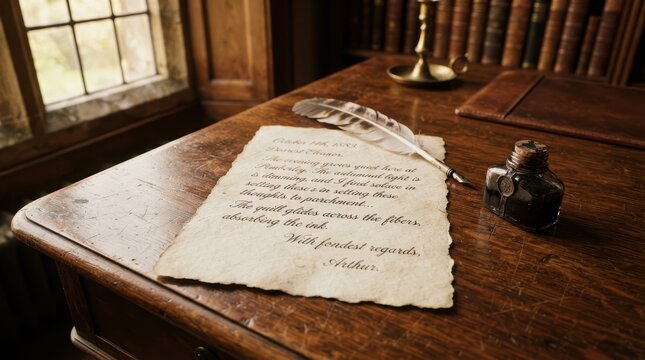 October 14th, 1883.
Dearest Eleanor,
The evening grows quiet here at
Pemberley. The autumnal light is
is dimming, and I find solace in
setting these s in setting these
thoughts to parchment...
The quill glides across the fibers,
absorbing the ink.
With fondest regards,
Arthur.